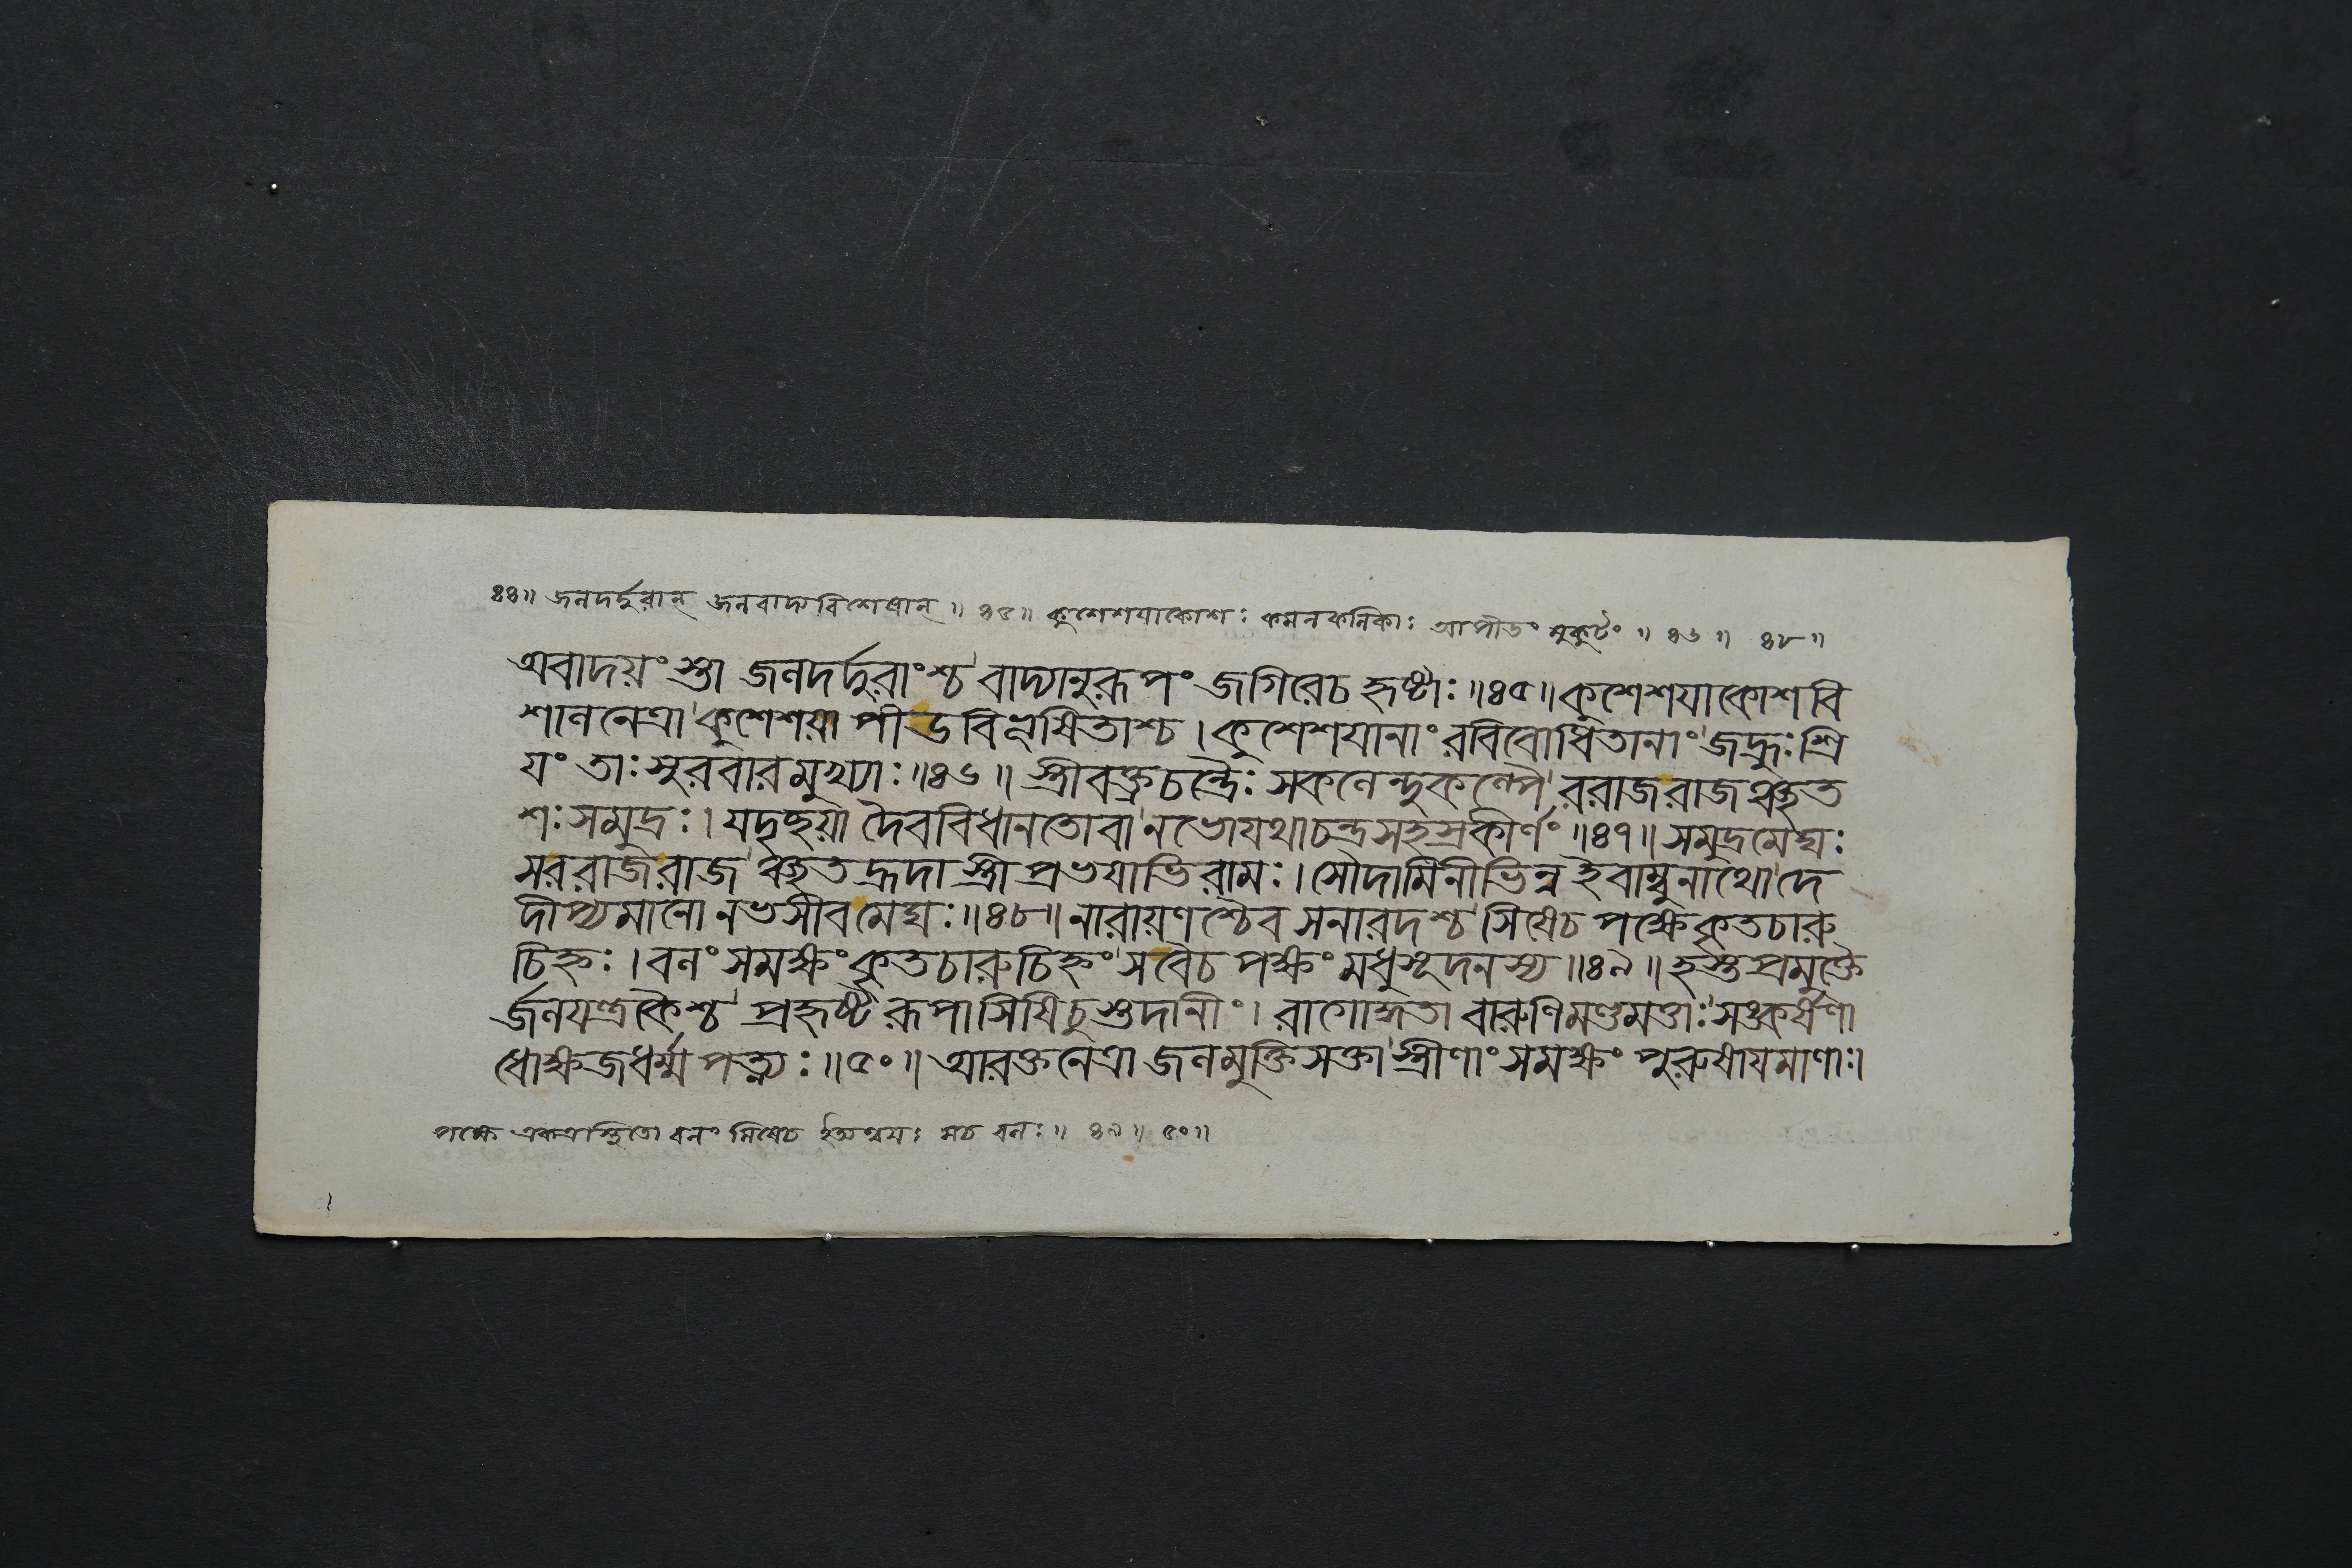 ৪৪॥ জলদর্দুরান্ জলবাদ্যবিশেষান্ ॥ ৪৫॥ কুশেশযাকোশঃ কমলকলিকাঃ আপীডং মুকুটং ॥ ৪৬ ॥ ৪৮ ॥
অবাদয়ংস্তা জলদর্দ্দুরাংশ্চ বাদ্যানুরূপং জগিরেচ হৃষ্টাঃ ॥৪৫॥ কুশেশযাকোশবি
শালনেত্রা কুশেশয়াপীডবিভূষিতাশ্চ । কুশেশযানাং রবিবোধিতানাং জহ্রুঃ শ্রি
যং তাঃ সুরবারমুখ্যাঃ ॥৪৬॥ স্ত্রীবক্ত্রচন্দ্রৈঃ সকলেন্দুকল্পৈ ররাজরাজঞ্ছত
শঃ সমুদ্রঃ । যদৃচ্ছয়া দৈববিধানতোবা নভোযথাচন্দ্রসহস্রকীর্ণং ॥৪৭॥ সমুদ্রমেঘঃ
সররাজরাজ ঞ্ছতহ্রদা স্ত্রী প্রভযাভিরামঃ । সৌদামিনীভিন্ন ইবাম্বুনাথো দে
দীপ্যমানো নভসীবমেঘঃ ॥৪৮॥ নারায়ণশ্চৈব সনারদশ্চ সিষেচ পক্ষে কৃতচারু
চিহ্নঃ । বলং সমক্ষং কৃতচারুচিহ্নং সবৈচ পক্ষং মধুসূদনস্য ॥৪৯॥ হস্তপ্রমুক্তৈ
র্জলযন্ত্রকৈশ্চ প্রহৃষ্টরূপা সিষিচুস্তুদানীং । রাগোদ্ধতা বারুণিমণ্ডমত্তাঃ সঙ্কর্ষণা
ধোক্ষজধর্ম্মপত্ন্যঃ ॥৫০॥ আরক্তনেত্রা জলমুক্তিসক্তা স্ত্রীণাং সমক্ষং পুরুষাযমাণাঃ।
পক্ষে একত্রাস্থিতো বলং সিষেচ ইত্যন্বযঃ সচ বলঃ ॥ ৪৯ ॥ ৫০॥